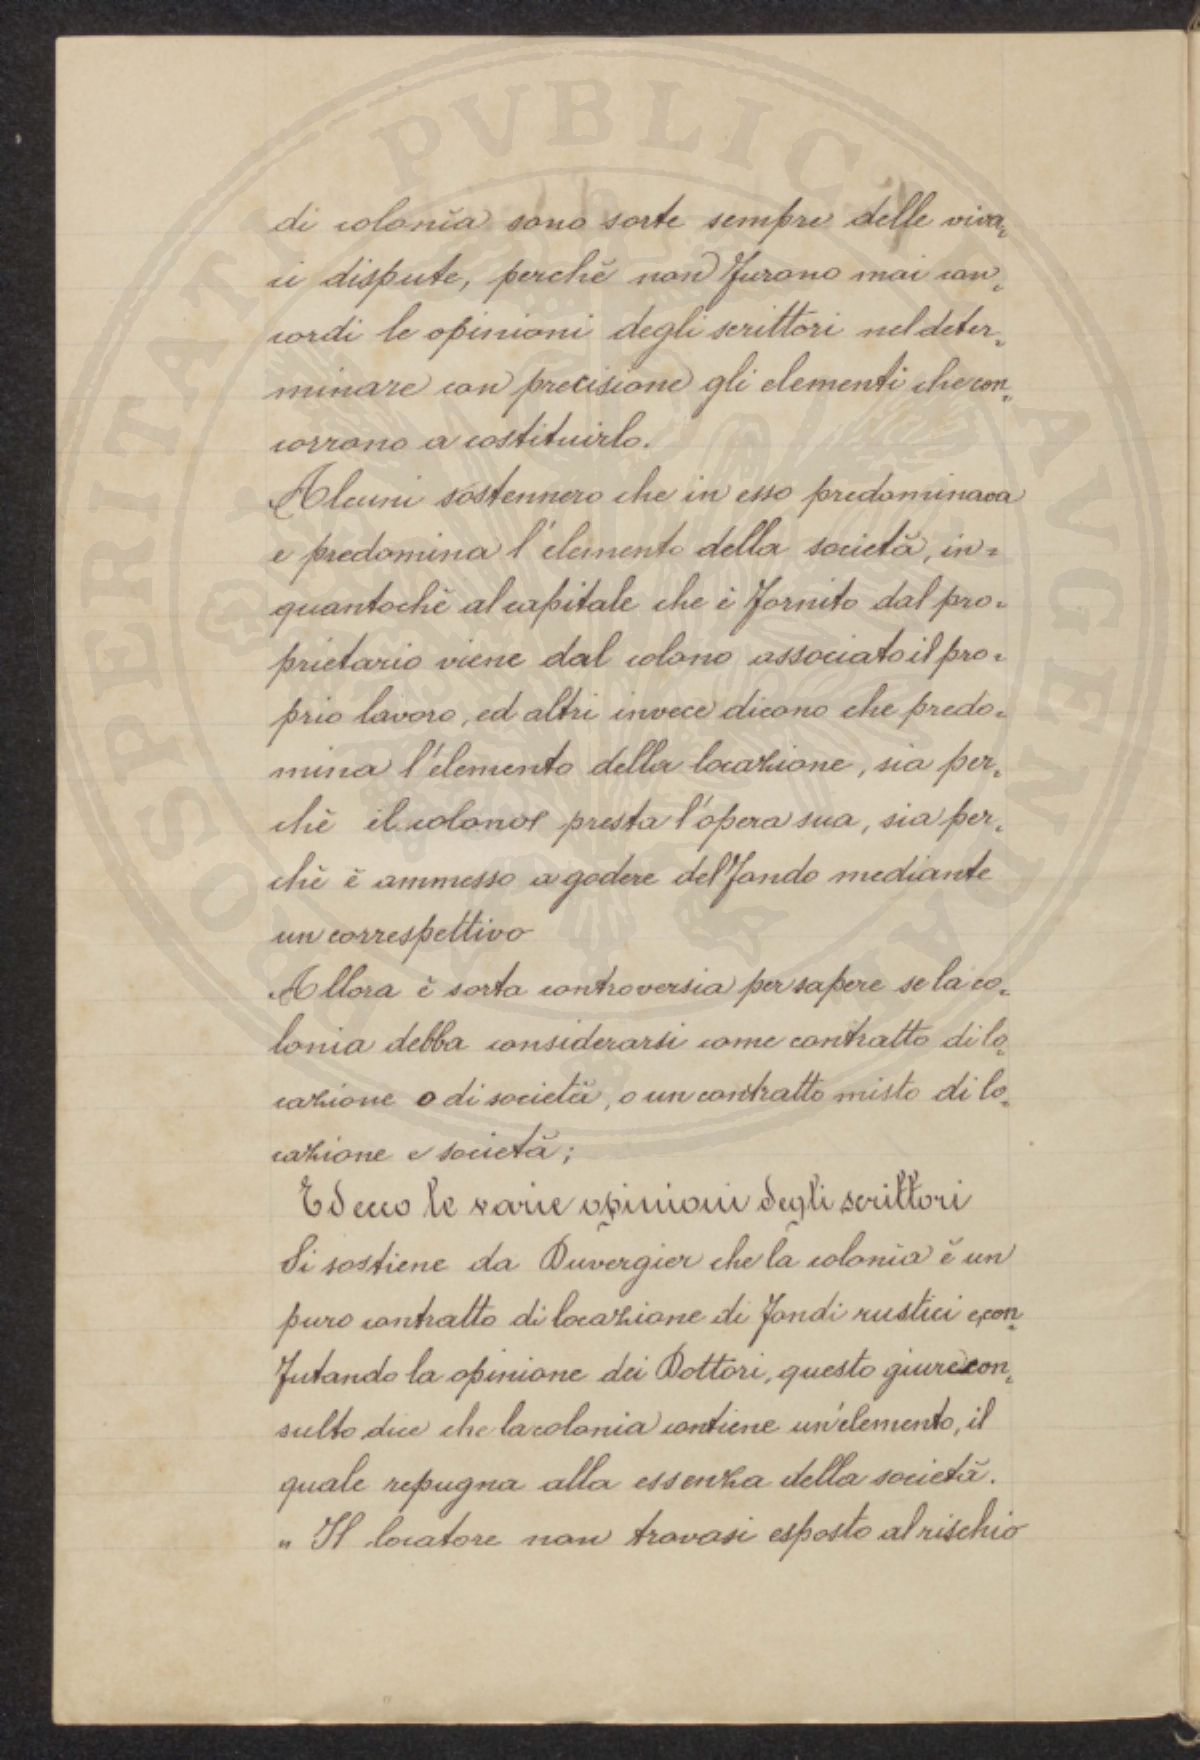 PROSPERITATI PVBLICAE AVGENDAE
di colonìa sono sorte sempre delle viva=
ci dispute, perchè non furono mai con=
cordi le opinioni degli scrittori nel deter=
minare con precisione gli elementi che con=
corrono a costituirlo.
Alcuni sostennero che in esso predominava
e predomina l'elemento della società, in=
quantochè al capitale che è fornito dal pro=
prietario viene dal colono associato il pro=
prio lavoro, ed altri invece dicono che predo=
mina l'elemento della locazione, sia per=
chè il colono presta l'opera sua, sia per=
chè è ammesso a godere del fondo mediante
un correspettivo
Allora è sorta controversia per sapere se la co=
lonia debba considerarsi come contratto di lo=
cazione o di società, o un contratto misto di lo=
cazione e società;
Ed ecco le varie opinioni degli scrittori
Si sostiene da Duvergier che la colonìa è un
puro contratto di locazione di fondi rustici e, con=
futando la opinione dei Dottori, questo giurecon=
sulto dice che la colonia contiene un'elemento, il
quale repugna alla essenza della società.
" Il locatore non trovasi esposto al rischio